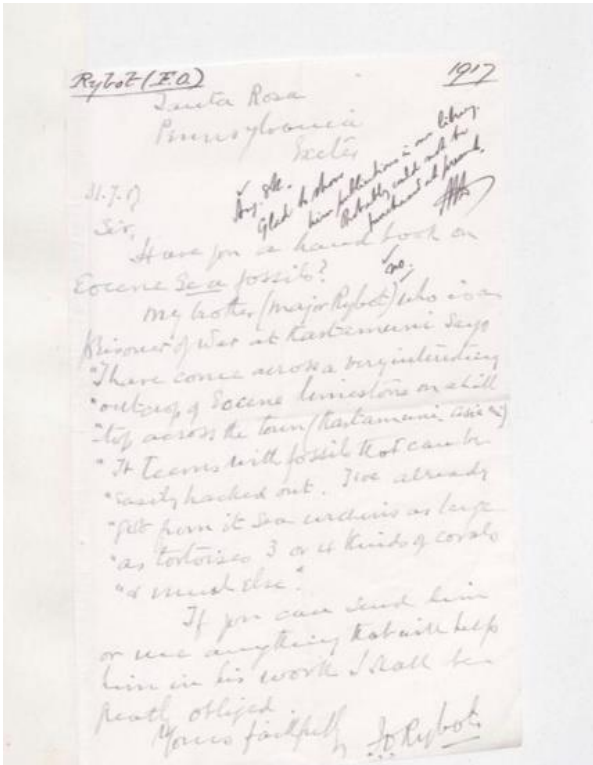 Rybot (F.O.)
1917
Santa Rosa
Pennsylvania
Exeter
31.7.17
Glad to show
him publications in our library.
Probably could not be
purchased at present.
Sir,
Have you a hand book on
Eocene Sea fossils?
no.
My brother (Major Rybot) who is a
Prisoner of War at Kastamuni says
"I have come across a very interesting
"outcrop of Eocene limestone on a hill
"top across the town (Kastamuni, Asia M)
"It teems with fossils that can be
"easily hacked out. I've already
"got from it sea urchins as large
"as tortoises 3 or 4 kinds of corals
"& much else."
If you can send him
or me anything that will help
him in his work I shall be
greatly obliged.
Yours faithfully
Rybot